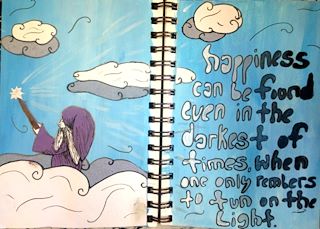 happiness
can be fiond
even in the
darkest of
times, when
one only rembers
to turn on the
light.